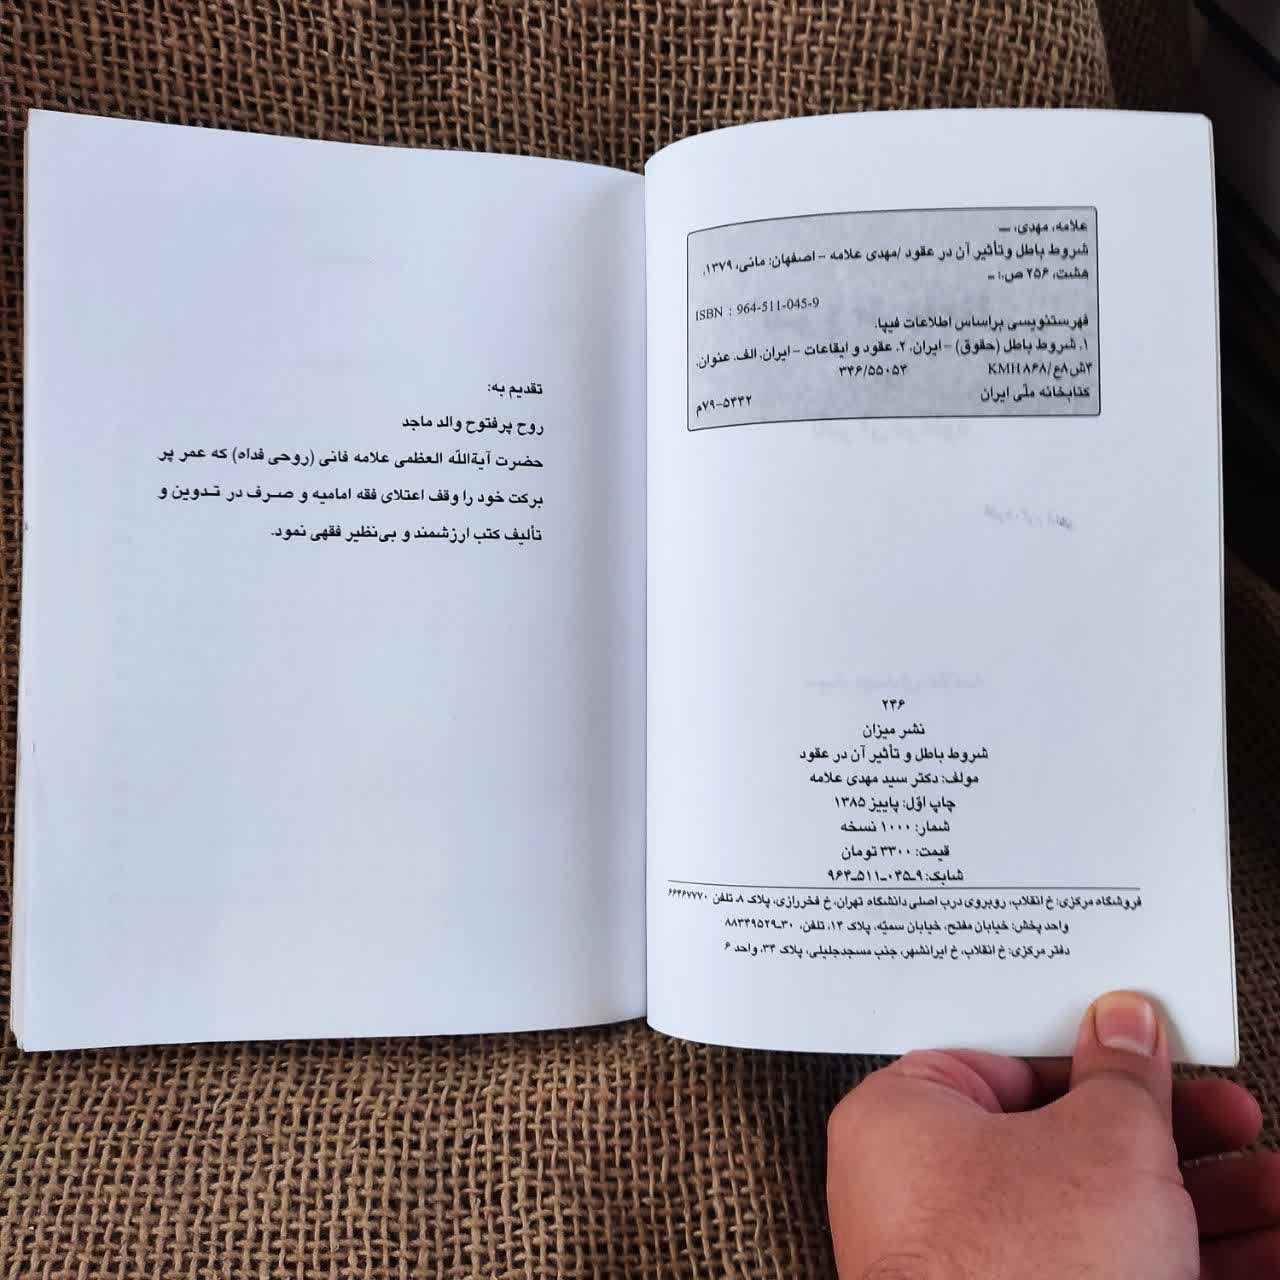 علامه، مهدی، ـــ
شروط باطل وتأثیر آن در عقود /مهدی علامه – اصفهان: مانی، ۱۳۷۹.
هشت، ۲۵۶ ص.: ـ
ISBN : 964-511-045-9
فهرستنویسی براساس اطلاعات فیپا.
۱. شروط باطل (حقوق) – ایران. ۲. عقود و ایقاعات – ایران. الف. عنوان.
۳ش۸ع/ KMH۸۶۸ ۳۴۶/۵۵۰۵۴
کتابخانه ملّی ایران ۷۹-۵۴۴۲م
۲۴۶
نشر میزان
شروط باطل و تأثیر آن در عقود
مولف: دکتر سید مهدی علامه
چاپ اوّل: پاییز ۱۳۸۵
شمار: ۱۰۰۰ نسخه
قیمت: ۳۳۰۰ تومان
شابک: ۹ـ۰۴۵ـ۵۱۱ـ۹۶۴
فروشگاه مرکزی: خ انقلاب، روبروی درب اصلی دانشگاه تهران، خ فخررازی، پلاک ۸، تلفن ۶۶۴۶۷۷۷۰
واحد پخش: خیابان مفتح، خیابان سمیّه، پلاک ۱۴، تلفن، ۳۰ـ۸۸۳۴۹۵۲۹
دفتر مرکزی: خ انقلاب، خ ایرانشهر، جنب مسجدجلیلی، پلاک ۳۴، واحد ۶
تقدیم به:
روح پرفتوح والد ماجد
حضرت آیةاللّه العظمی علامه فانی (روحی فداه) که عمر پر
برکت خود را وقف اعتلای فقه امامیه و صـرف در تـدوین و
تألیف کتب ارزشمند و بی‌نظیر فقهی نمود.